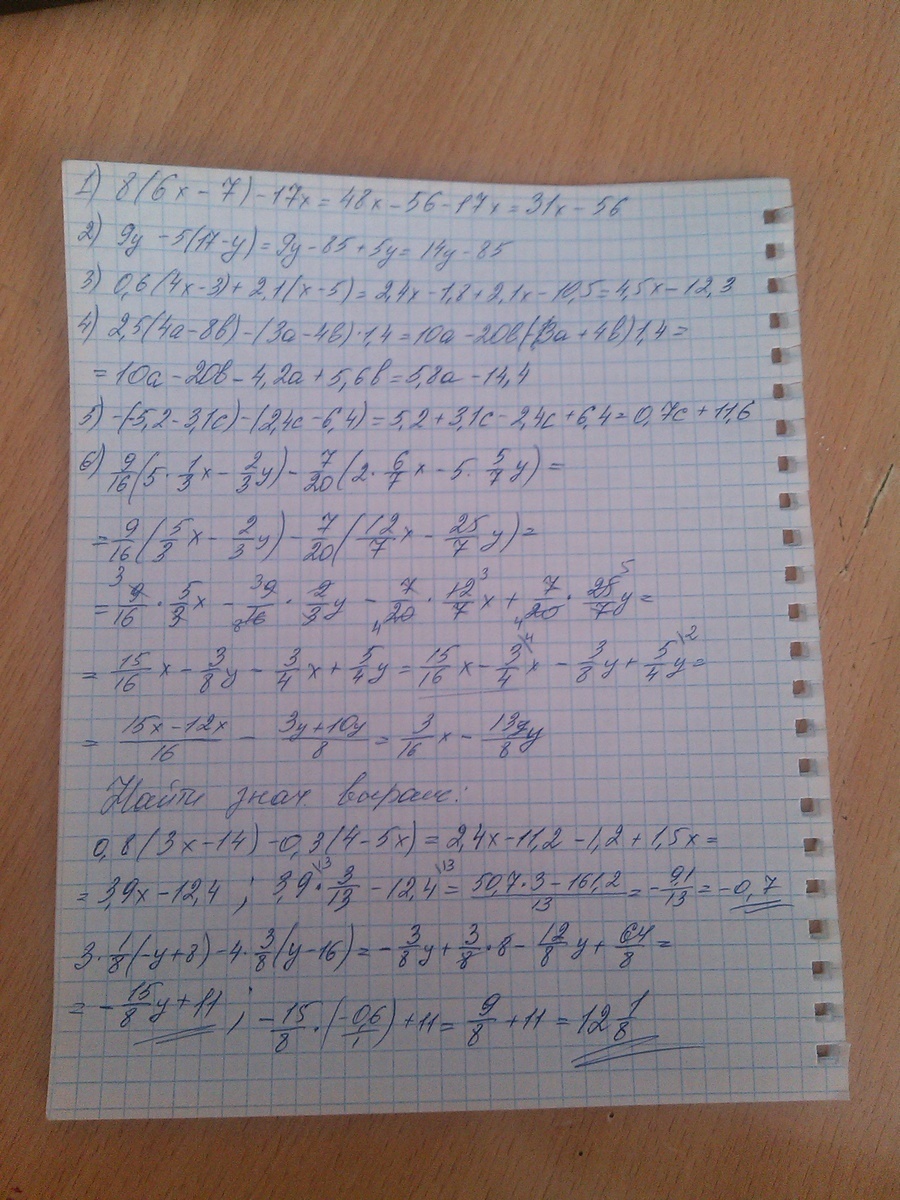 1) 8(6x - 7) - 17x = 48x - 56 - 17x = 31x - 56
2) 9y - 5(17-y) = 9y - 85 + 5y = 14y - 85
3) 0,6(4x-3) + 2,1(x-5) = 2,4x - 1,8 + 2,1x - 10,5 = 4,5x - 12,3
4) 2,5(4a - 8в) - (3a - 4в)·1,4 = 10a - 20в(-3a + 4в)1,4 =
= 10a - 20в - 4,2a + 5,6в = 5,8a - 14,4
5) -(-5,2 - 3,1c) - (2,4c - 6,4) = 5,2 + 3,1c - 2,4c + 6,4 = 0,7c + 11,6
6) 9/16(5·1/3x - 2/3y) - 7/20(2·6/7x - 5·5/7y) =
= 9/16(5/3x - 2/3y) - 7/20(12/7x - 25/7y) =
= 9/16 · 5/3x - 9/16 · 2/3y - 7/20 · 12/7x + 7/20 · 25/7y =
= 15/16x - 3/8y - 3/4x + 5/4y = 15/16x - 3/4x - 3/8y + 5/4y =
= 15x-12x/16 - 3y+10y/8 = 3/16x - 13y/8
Найти знач выраж:
0,8(3x-14) - 0,3(4-5x) = 2,4x - 11,2 - 1,2 + 1,5x =
= 3,9x - 12,4 ; 3,9 · 3/13 - 12,4 = 50,7·3-161,2/13 = -9,1/13 = -0,7
3·1/8(-y+8) - 4·3/8(y-16) = -3/8y + 3/8·8 - 12/8y + 64/8 =
= -15/8y + 11 ; -15/8 · (-0,6/1) + 11 = 9/8 + 11 = 12 1/8